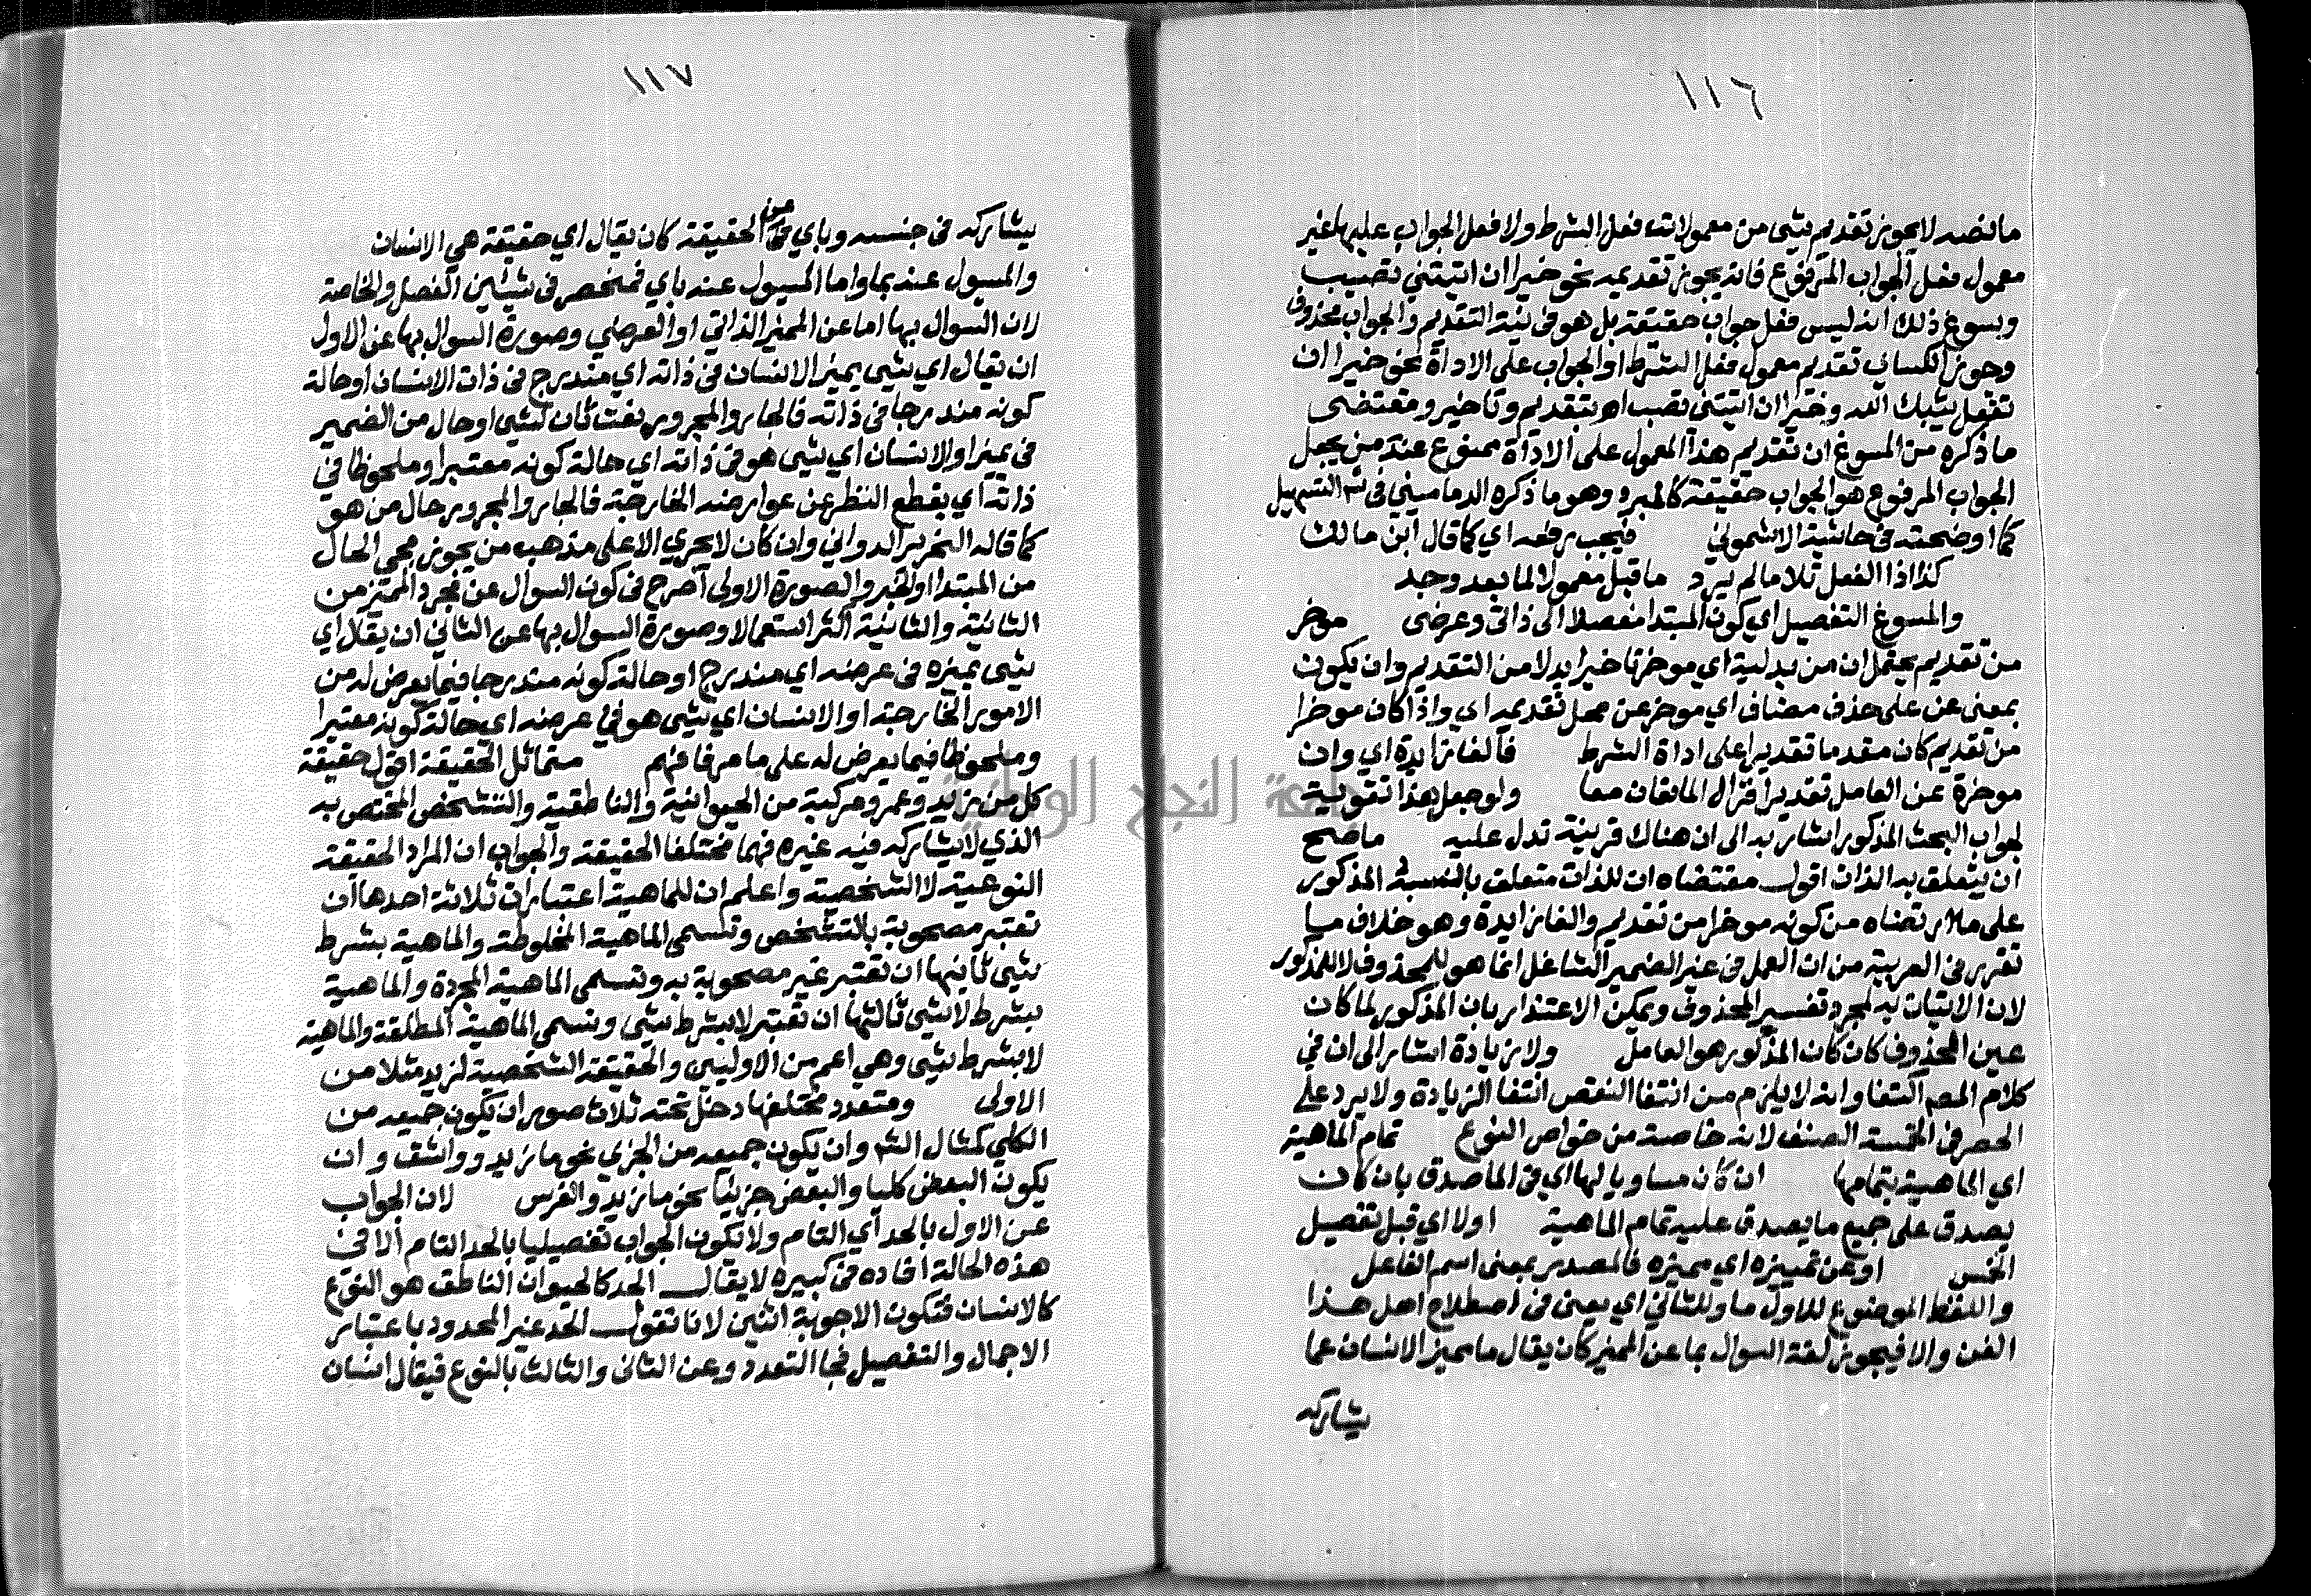 ١١٦
ما نصه لا يجوز تقديم شي من معمولات فعل الشرط ولا فعل الجواب عليها غير
معمول فعل الجواب المرفوع فانه يجوز تقديمه نحو خيرا ان اتيتني تصيب
ويسوغ ذلك انه ليس فعل جواب حقيقة بل هو في نية التقديم والجواب محذوف
وجوز الكساي تقديم معمول فعل الشرط او الجواب على الاداة نحو خيرا ان
تفعل يثبك الله وخيرا ان اتيتني تصب اه بتقديم وتاخير ومقتضى
ما ذكره من المسوغ ان تقديم هذا المعمول على الاداة ممنوع عند من يجعل
الجواب المرفوع هو الجواب حقيقة كالمبرد وهو ما ذكره الدماميني في شر التسهيل
كما اوضحته في حاشية الاشموني فيجب رفعه اي كما قال ابن مالك
كذا اذا الفعل تلا ما لم يرد ما قبل معمولا لما بعد وجد
والمسوغ التفصيل اي كون المبتدا مفصلا الى ذاتي وعرضي موخر
من تقديم يحتمل ان من بدلية اي موخرتا خيرا بدلا من التقديم وان يكون
بمعنى عن على حذف مضاف اي موخر عن محل تقديمه اي واذا كان موخرا
من تقديم كان مقدما تقديرا على اداة الشرط فالفا زايدة اي وان
موخرة عن العامل تقديرا فزال المانعان معا ولو جعل هذا تقوية
لجواب البحث المذكور اشار به الى ان هناك قرينة تدل عليه ما صح
ان يتعلق به الذات اقول مقتضاه ان للذات متعلق بالنسبة المذكور
على ما ارتضاه من كونه موخرا من تقديم والفا زايدة وهو خلاف ما
تقرر في العربية من ان العمل في غير الضمير الشاغل انما هو للمحذوف لا للمذكور
لان الاتيان به لمجرد تفسير المحذوف ويمكن الاعتذار بان المذكور لما كان
عين المحذوف كان كان المذكور هو العامل ولا زيادة اشار الى ان في
كلام المصم اكتفا وانه لا يلزم من انتفا النقص انتفا الزيادة ولا يرد على
الحصر في الخمسة الصنف لانه خاصة من خواص النوع تمام الماهية
اي الماهية بتمامها ان كان مساويا لها اي في الماصدق بان كان
يصدق على جميع ما يصدق عليه تمام الماهية اولا اي قبل تفصيل
الخمس او عن تمييزه اي مميزه فالمصدر بمعنى اسم الفاعل
واللفظ الموضوع للاول ما وللثاني اي يعني في اصطلاح اهل هذا
الفن والا فيجوز لغة السوال بما عن المميز كان يقال ما مميز الانسان عما
يشاركه
١١٧
يشاركه في جنسه وباي عن الحقيقة كان يقال اي حقيقة هي الانسان
والمسول عنه بما واما المسيول عنه باي فمنحصر في شيئين الفصل والخاصة
لان السوال بها اما عن المميز الذاتي او العرضي وصورة السوال بها عن الاول
ان يقال اي شي يميز الانسان في ذاته اي مندرج في ذات الانسان او حالة
كونه مندرجا في ذاته فالجار والمجرور نعت ثان لشي او حال من الضمير
في يميز او الانسان اي شي هو في ذاته اي حالة كونه معتبرا وملحوظا في
ذاته اي بقطع النظر عن عوارضه الخارجة فالجار والمجرور حال من هو
كما قاله النحرير الدواني وان كان لا يجري الا على مذهب من يجوز مجي الحال
من المبتدا او الخبر والصورة الاولى اصرح في كون السوال عن مجرد المميز من
الثانية والثانية اكثر استعمالا وصورة السوال بها عن الثاني ان يقال اي
شي يميزه في عرضه اي مندرج او حالة كونه مندرجا فيما يعرض له من
الامور الخارجة او الانسان اي شي هو في عرضه اي حالة كونه معتبرا
وملحوظا فيما يعرض له على ما مر فافهم متماثل الحقيقة اقول حقيقة
كل من زيد وعمرو مركبة من الحيوانية والناطقية والتشخص المختص به
الذي لا يشاركه فيه غيره فهما مختلفا الحقيقة والجواب ان المراد الحقيقة
النوعية لا الشخصية واعلم ان للماهية اعتبارات ثلاثة احدها ان
تعتبر مصحوبة بالتشخص وتسمى الماهية المخلوطة والماهية بشرط
شي ثانيها ان تعتبر غير مصحوبة به وتسمى الماهية المجردة والماهية
بشرط لا شي ثالثها ان تعتبر لا بشرط شي وتسمى الماهية المطلقة والماهية
لا بشرط شي وهي اعم من الاوليين والحقيقة الشخصية لزيد مثلا من
الاولى ومتعدد مختلفها دخل تحته ثلاث صور ان يكون جميعه من
الكلي كمثال الشر وان يكون جميعه من الجزي نحو ما زيد وواشق وان
يكون البعض كليا والبعض جزئيا نحو ما زيد والفرس لان الجواب
عن الاول بالحد اي التام ولا يكون الجواب تفصيليا بالحد التام الا في
هذه الحالة افاده في كبيره لا يقال الحد كالحيوان الناطق هو النوع
كالانسان فتكون الاجوبة اثنين لانا نقول الحد غير المحدود باعتبار
الاجمال والتفصيل فجا التعدد وعن الثاني والثالث بالنوع فيقال انسان
جامعة النجاح الوطنية